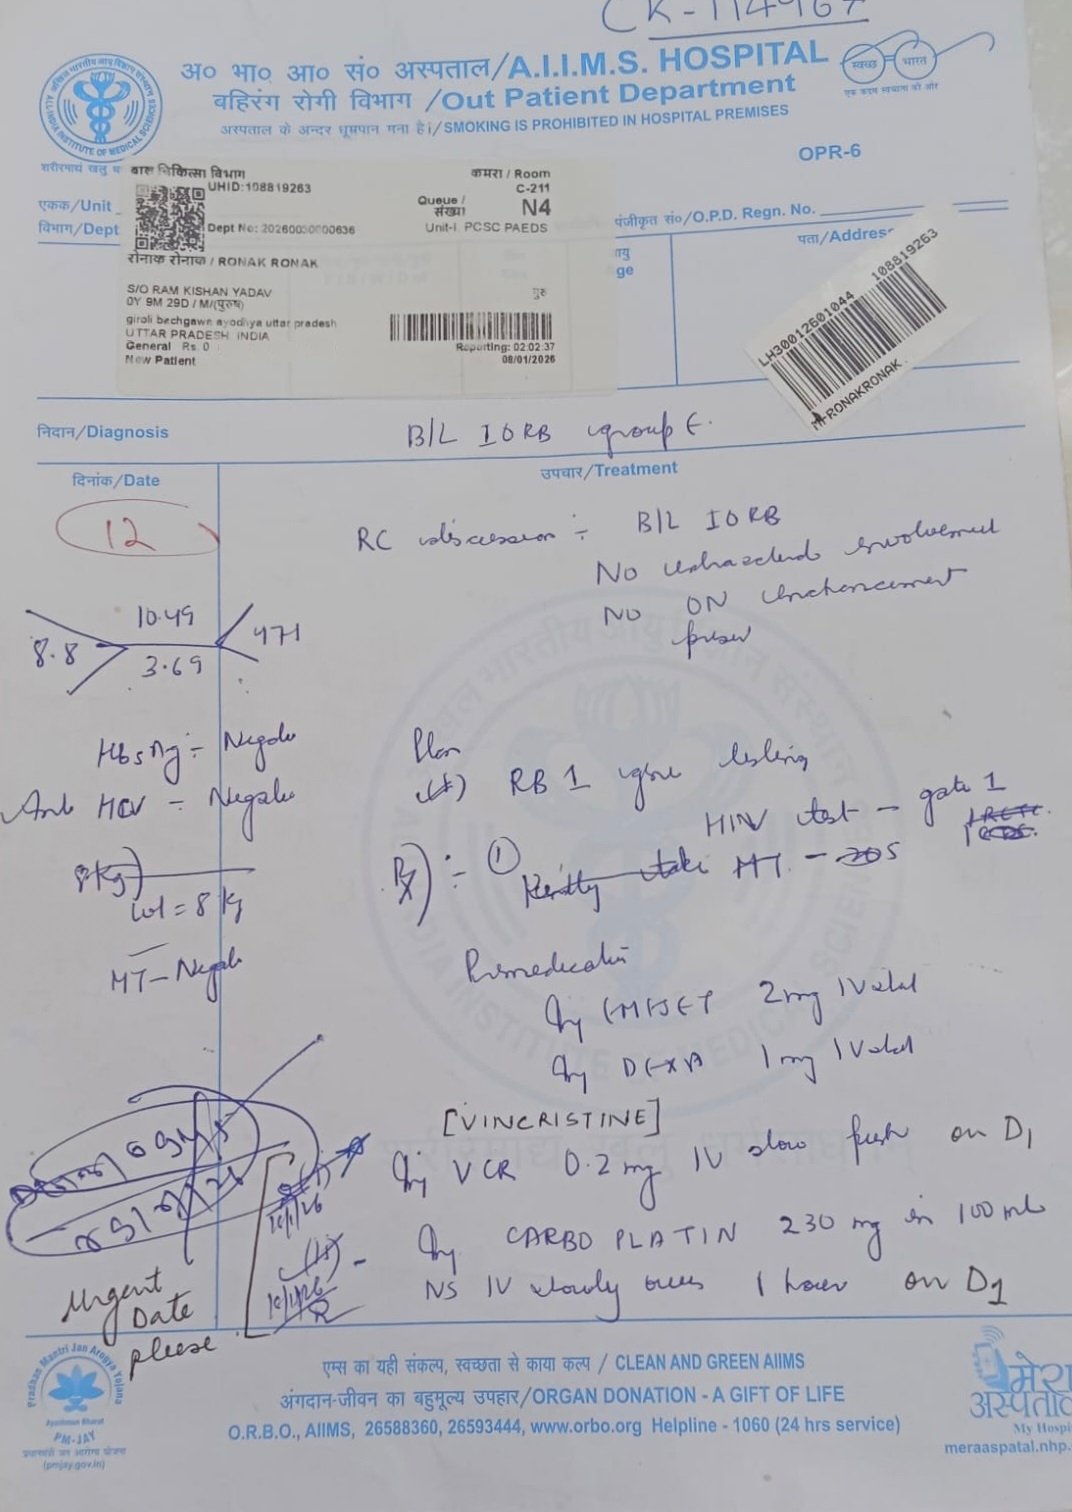 CK-114967
अ० भा० आ० सं० अस्पताल/A.I.I.M.S. HOSPITAL
स्वच्छ भारत
एक कदम स्वच्छता की ओर
बहिरंग रोगी विभाग /Out Patient Department
अस्पताल के अन्दर धूम्रपान मना है।/SMOKING IS PROHIBITED IN HOSPITAL PREMISES
ALL INDIA INSTITUTE OF MEDICAL SCIENCES
OPR-6
एकक/Unit
विभाग/Dept
चिकित्सा विभाग
कमरा / Room
UHID:108819263
C-211
Queue / संख्या N4
Dept No: 20260030000636
Unit-I, PCSC PAEDS
रोनाक रोनाक / RONAK RONAK
S/O RAM KISHAN YADAV
0Y 9M 29D / M/(पुरुष)
giroli bechgawn ayodhya uttar pradesh
UTTAR PRADESH, INDIA
General Rs. 0
Reporting: 02:02:37
New Patient
08/01/2026
पंजीकृत सं०/O.P.D. Regn. No.
पता/Address
LH30012601044 108819263
RONAKRONAK
निदान/Diagnosis
B/L IORB group E.
दिनांक/Date
उपचार/Treatment
12
RC discussion ÷ B/L IORB
No involvement
No ON enhancement
10.49
8.8 471
3.69
HbsAg ÷ Negative
HCV - Negative
8kg
wt = 8 kg
MT - Negative
Plan
RB 1 gene testing
HIV test - gate 1
① Kindly take MT.
Premedication
Inj EMESET 2 mg IV stat
Inj DEXA 1 mg IV stat
[VINCRISTINE]
Inj VCR 0.2 mg IV slow push on D1
Inj CARBOPLATIN 230 mg in 100 ml
NS IV slowly over 1 hour on D1
Urgent
Date
please
Pradhan Mantri Jan Arogya Yojana
Ayushman Bharat
PM-JAY
(pmjay.gov.in)
एम्स का यही संकल्प, स्वच्छता से काया कल्प / CLEAN AND GREEN AIIMS
अंगदान-जीवन का बहुमूल्य उपहार/ORGAN DONATION - A GIFT OF LIFE
O.R.B.O., AIIMS, 26588360, 26593444, www.orbo.org Helpline - 1060 (24 hrs service)
मेरा
अस्पताल
My Hospi
meraaspatal.nhp.